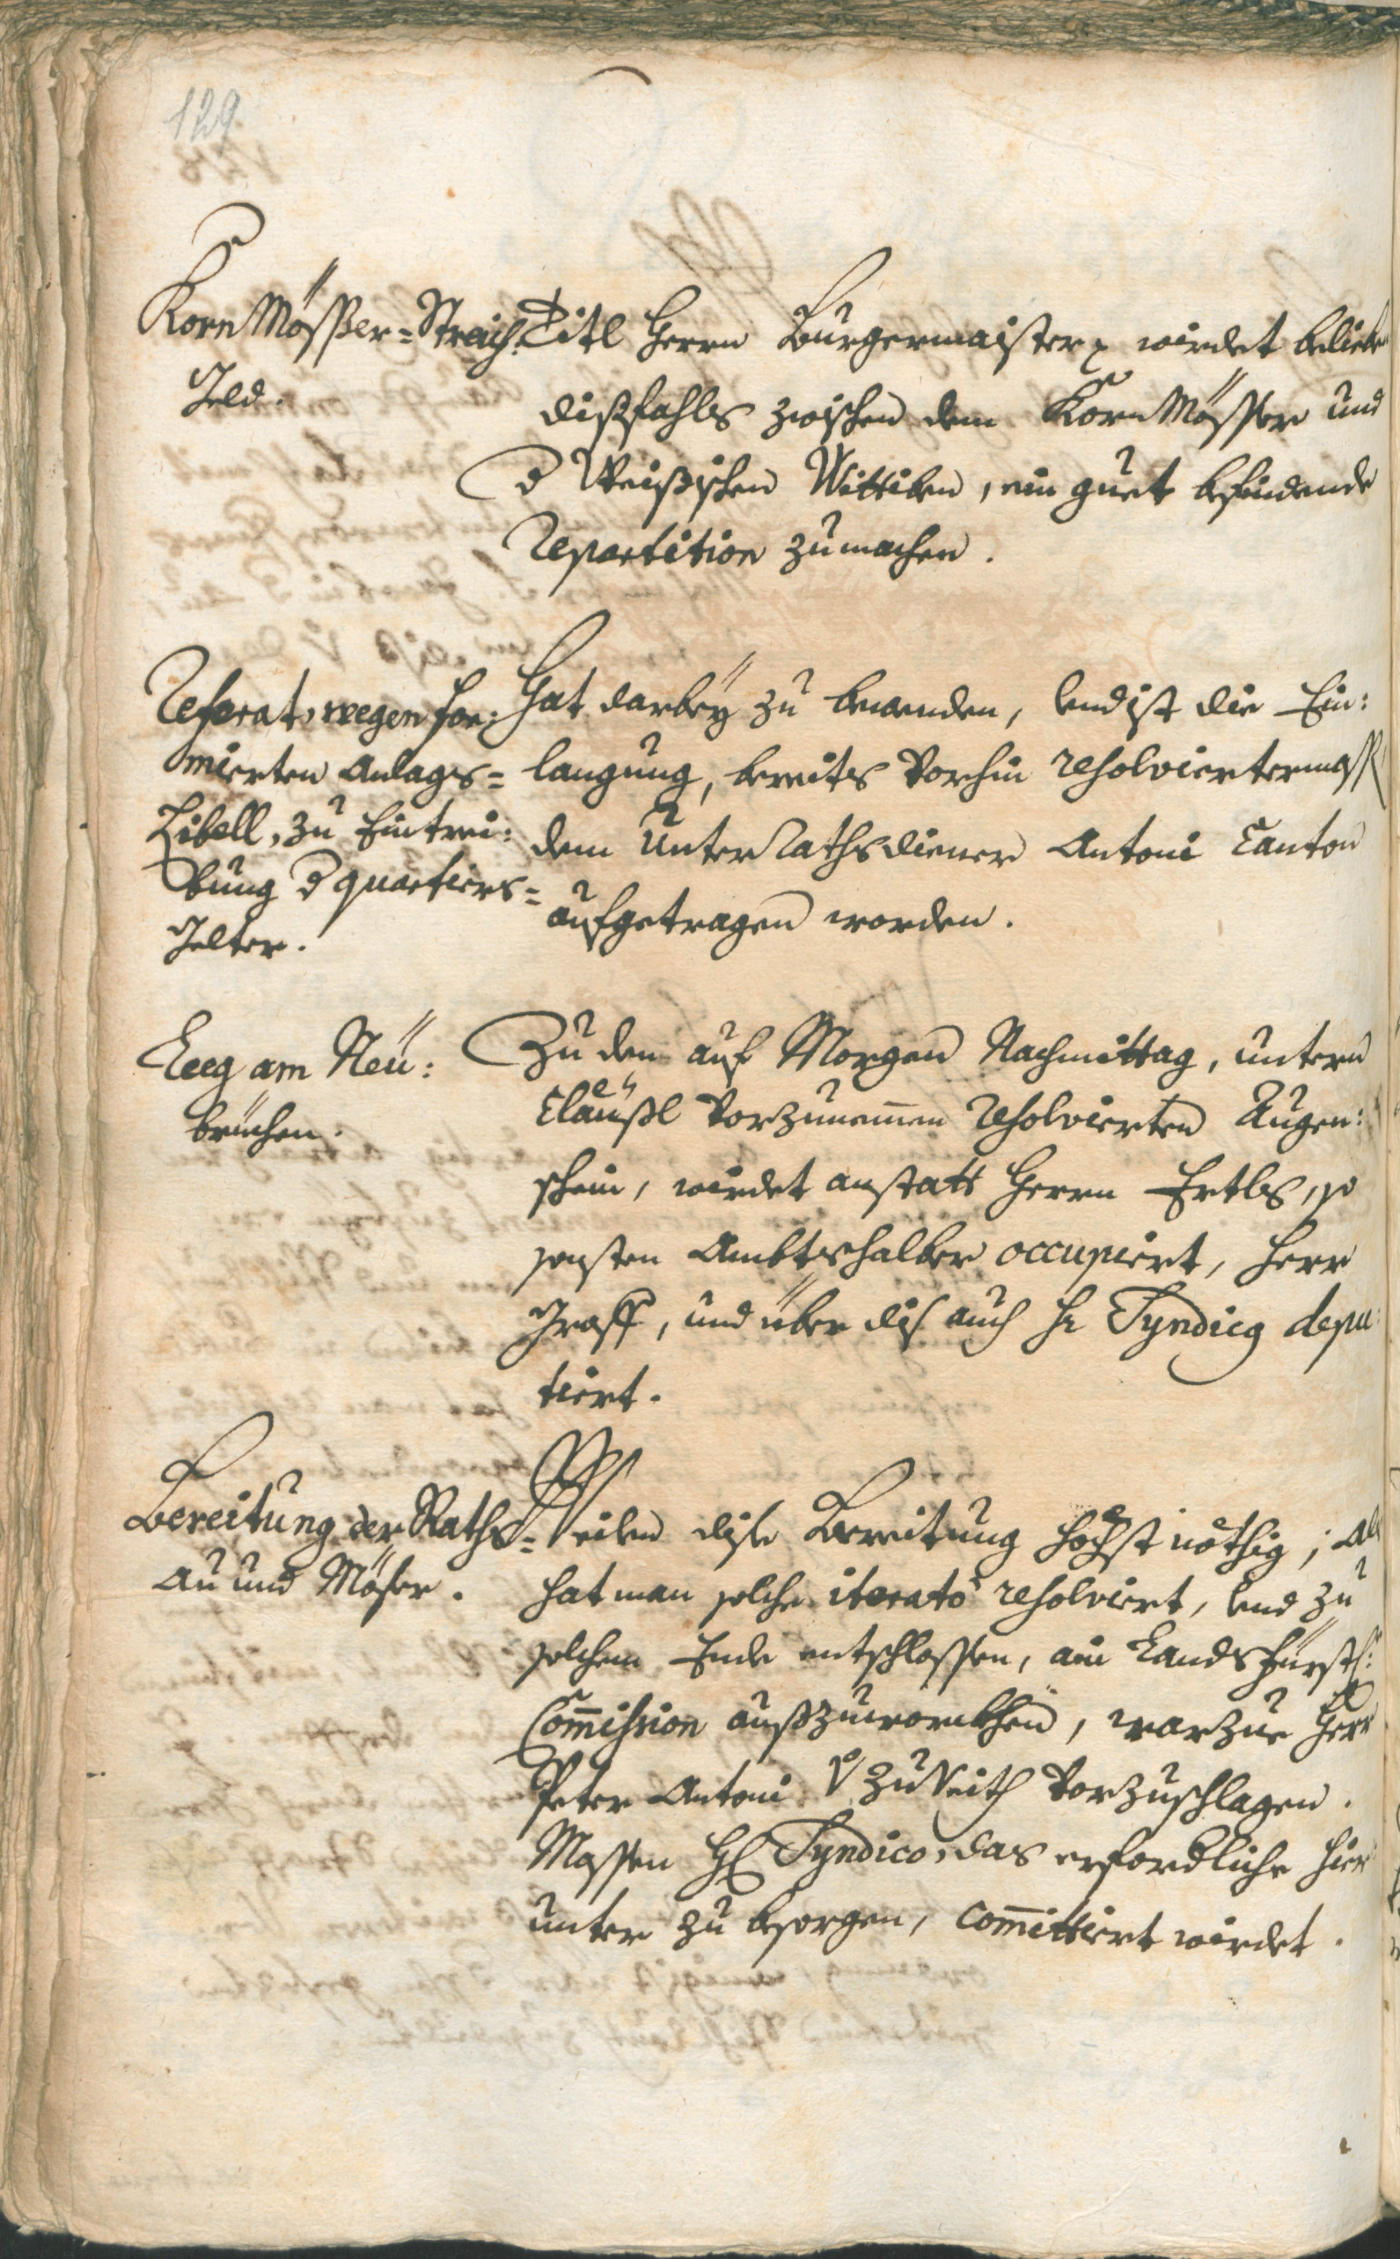 129
Korn Mösser-Streich
Geld.
Titl Herrn Burgermaister wirdet beliebe
dißfahls zwischen dem Korn Mösser und
d Weißischen Wittiben, ein guet befindende
Repartition zumachen.
Referat, wegen for:
mierten Anlags=
Libell, zu Eintrei:
bung d quartiers=
Gelter.
Hat darbeÿ zu bewenden, und ist die Ein:
langung, bereits vorhin resolviertermass
dem Unter Rathsdiener Antoni Canton
aufgetragen worden.
Leeg am Neü:
brüchen.
Zu dem auf Morgen Nachmittag, untern
Cläußl vorzunemmen resolvierten Augen:
schein, wirdet anstatt Herrn Ertls, so
sonsten Ambtshalber occupiert, Herr
Graff, und über diß auch Hr Syndicg depu:
tiert.
Bereitung der Raths=
Au und Möser.
Weilen dise Bereitung höchst nöthig; als
hat man solche iterato resolviert, und zu
solchem Ende entschlossen, ain Landsfürstl:
Commission außzuworckhen, warzue Herr
Peter Antoni V. Zu Vorzuschlagen.
Massen H Syndico, das erforderliche hier
unter zu besorgen, committiert wirdet.